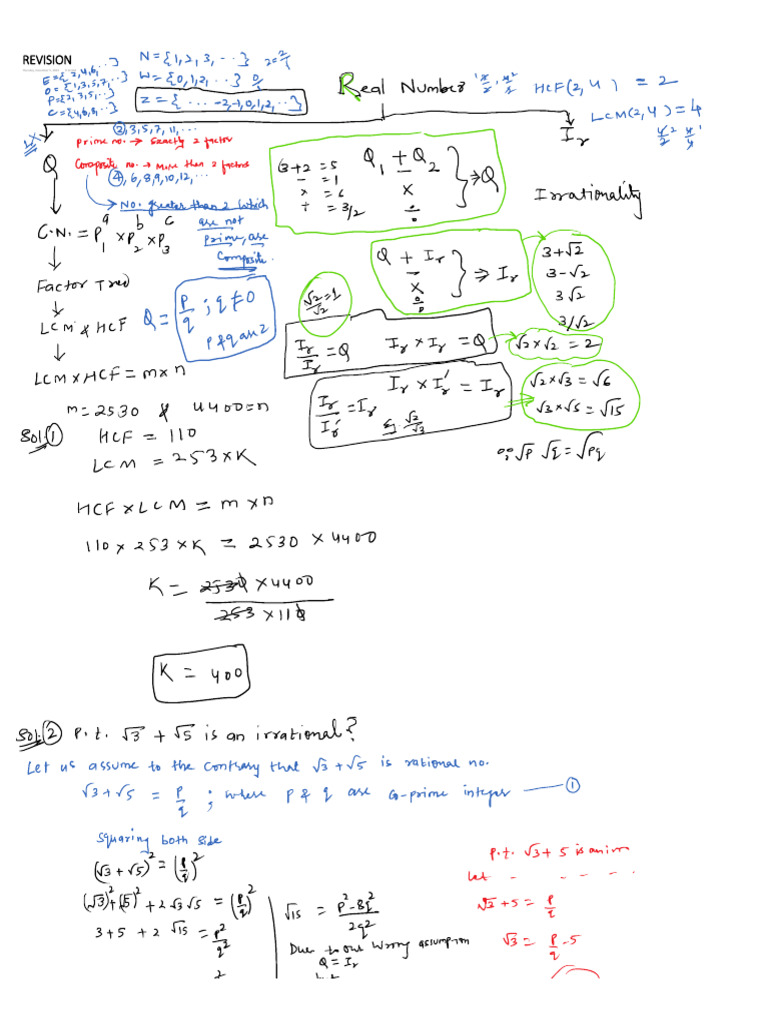 REVISION
N = {1, 2, 3, ...} 2 = 2/1
W = {0, 1, 2, ...} 0/1
Z = { ... -2, -1, 0, 1, 2, ..}
E = {2, 4, 6, ..}
O = {1, 3, 5, 7, ..}
P = {2, 3, 5, ...}
C = {4, 6, 8, ..}
Real Number
HCF(2, 4) = 2
LCM(2, 4) = 4
2, 3, 5, 7, 11, ...
Prime no. → Exactly 2 factor
Composite no. → More than 2 factors
4, 6, 8, 9, 10, 12, ...
→ No. greater than 2 which
are not
prime, are
Composite.
Q
C.N. = P₁ᵃ × P₂ᵇ × P₃ᶜ
Factor Tree
LCM & HCF
LCM × HCF = m × n
Q = p/q ; q ≠ 0
3 + 2 = 5
- = 1
× = 6
÷ = 3/2
Q₁ + Q₂
-
×
÷
⇒ Q
Ir
Irrationality
Q + Ir
-
×
÷
⇒ Ir
3 + √2
3 - √2
3√2
3/√2
√2/√2 = 1
Ir/Ir = Q Ir × Ir = Q
√2 × √2 = 2
Ir/Ir' = Ir Ir × Ir' = Ir
Eg. √2/√3
√2 × √3 = √6
√3 × √5 = √15
∵ √p √q = √pq
m = 2530 & 4400 = n
Sol: 1 HCF = 110
LCM = 253 × K
HCF × LCM = m × n
110 × 253 × K = 2530 × 4400
K = 2530 × 4400
253 × 110
K = 400
Sol: 2 P.t. √3 + √5 is an irrational?
Let us assume to the contrary that √3 + √5 is rational no.
√3 + √5 = p/q ; where P & q are Co-prime integer — 1
Squaring both side
(√3 + √5)² = (p/q)²
(√3)² + (√5)² + 2√3√5 = (p/q)²
3 + 5 + 2√15 = p²/q²
√15 = p² - 8q² / 2q²
Due to our wrong assumption
Q = Ir
P.t. √3 + 5 is an irr
Let - - - - -
√3 + 5 = p/q
√3 = p/q - 5